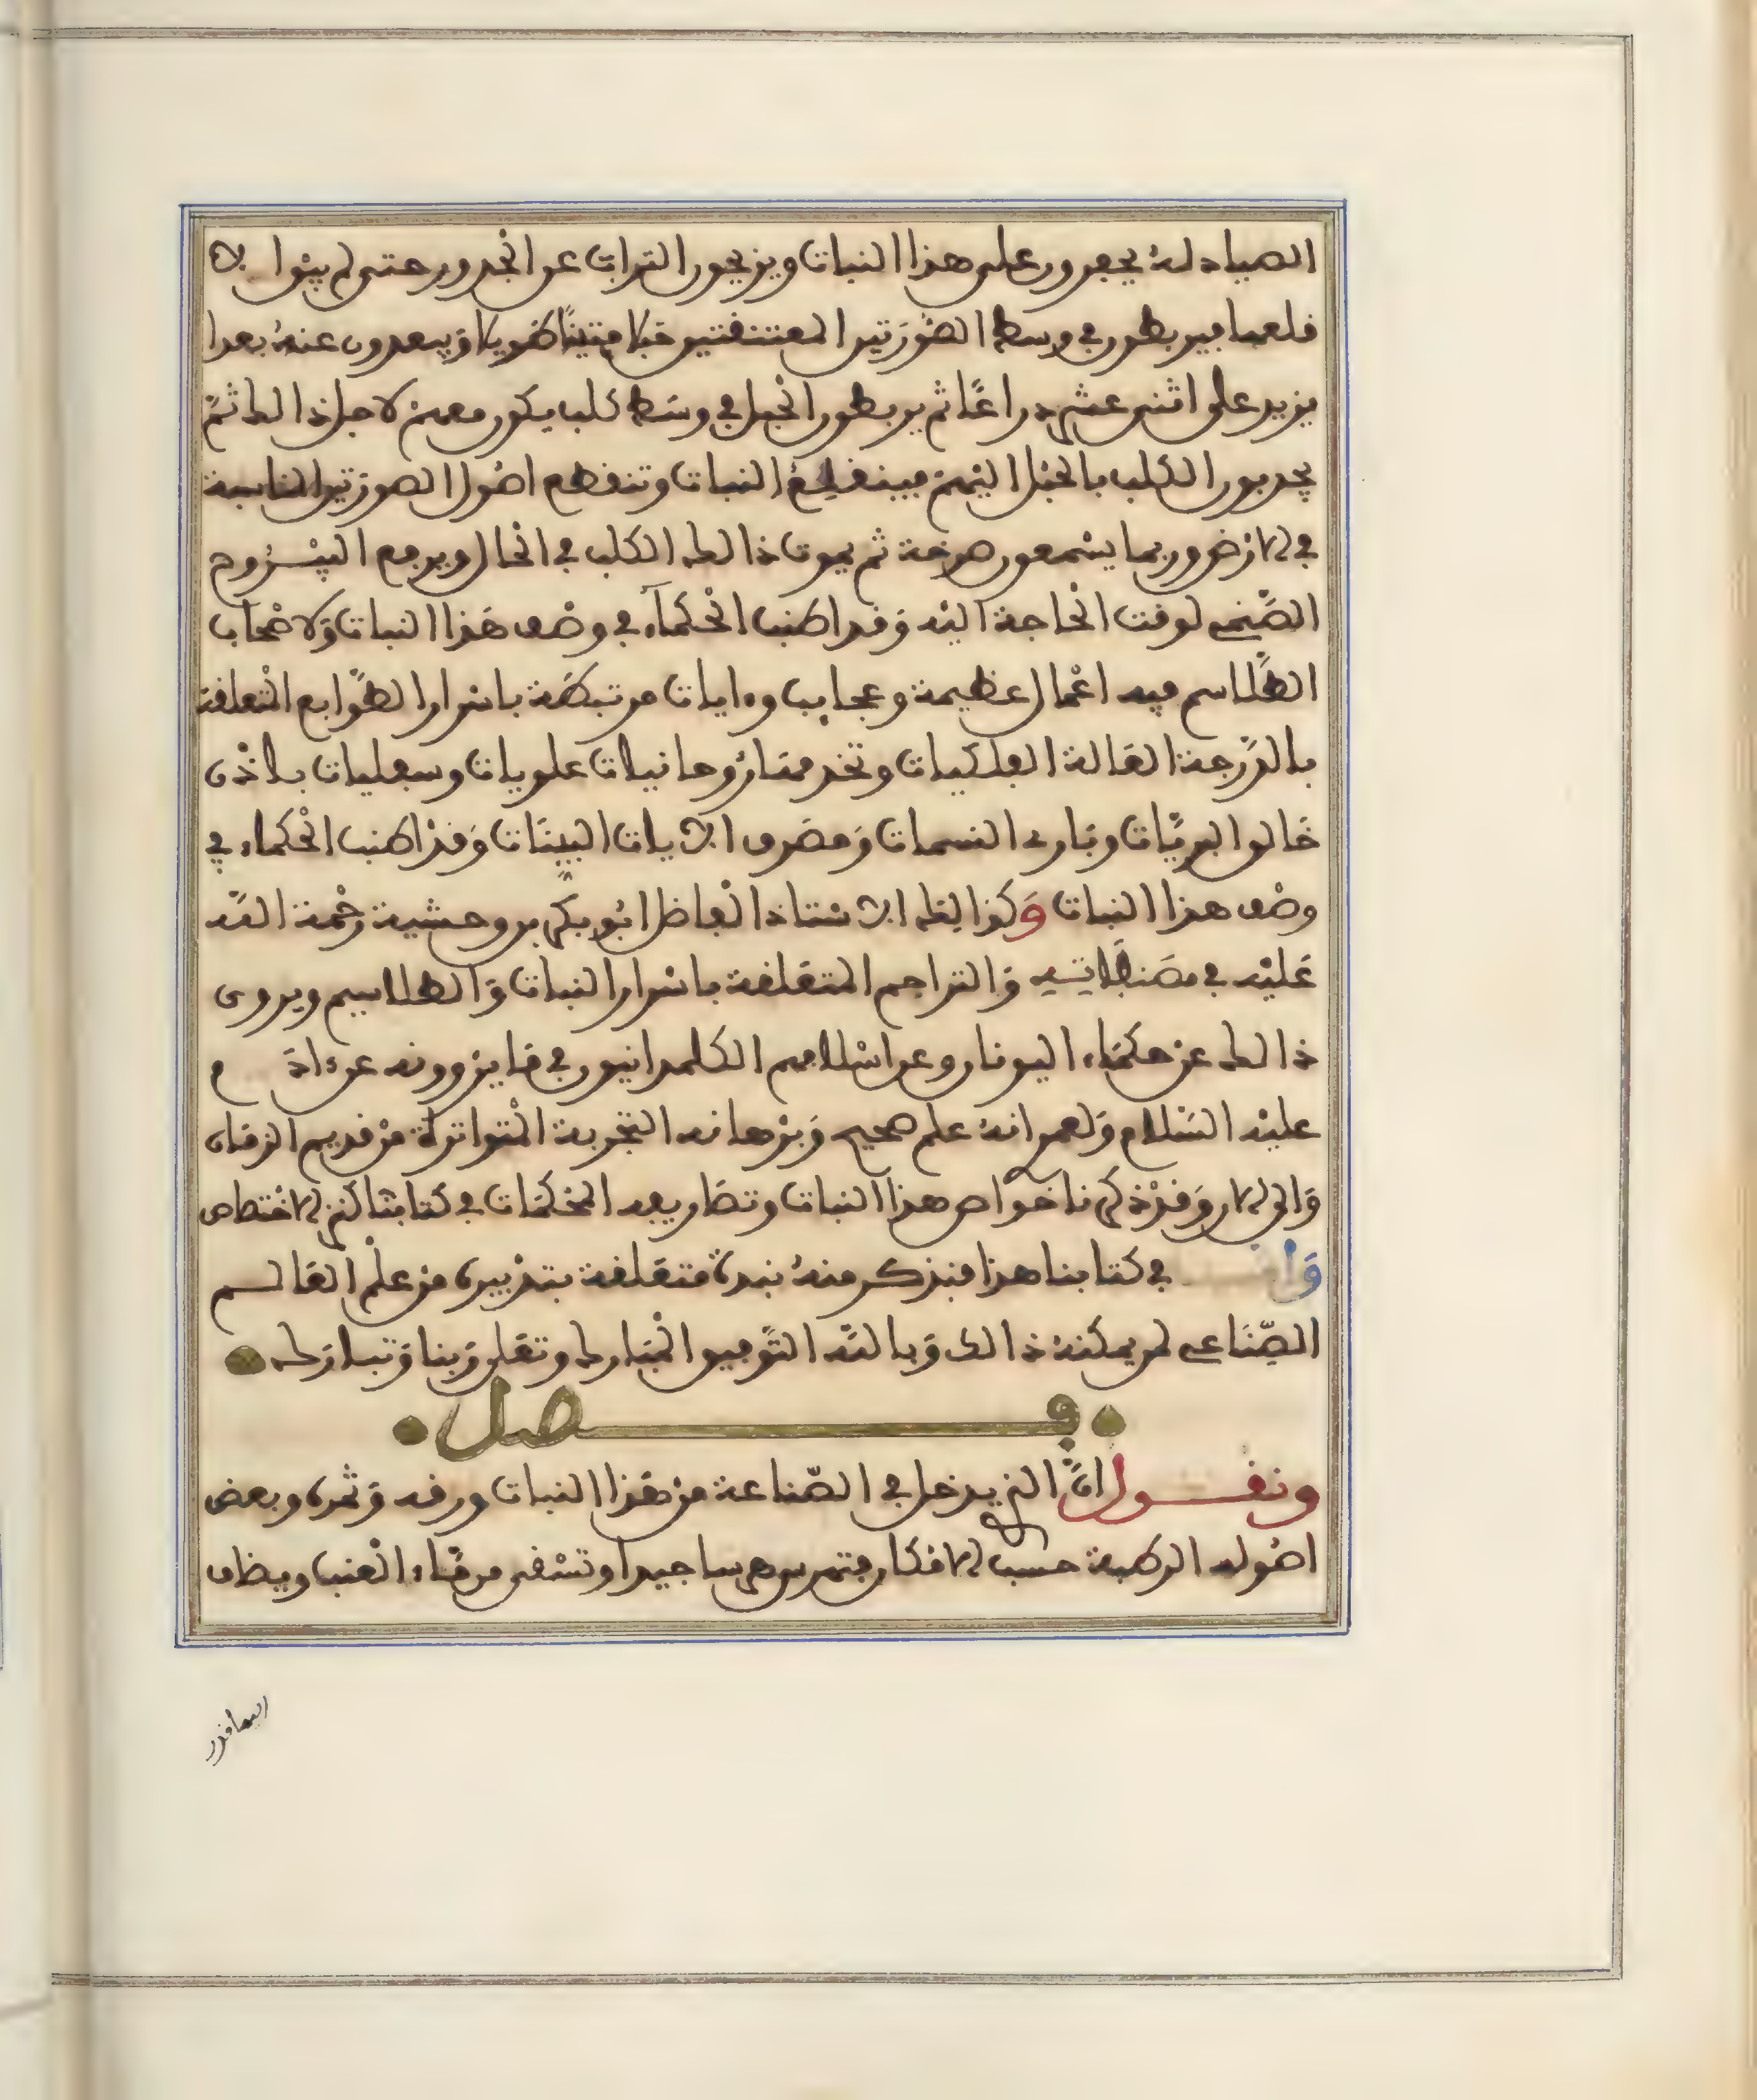 الصيادلة يحفرون على هذا النبات ويزيحون التراب عن الجدور حتى لم يبق الا
قلعها فيربطون في وسط الصورتين المعتنقتين حبلا متينًا طويلا ويبعدون عنه بعدا
يزيد على اثنى عشر دراعًا ثم يربطون الحبل في وسط كلب يكون معهم لاجل ذالك ثم
يجدبون الكلب بالحبل اليهم فينقلع النبات وتنقطع اصول الصورتين الناسبة
في الارض وربما يسمعون صرخة ثم يموت ذالك الكلب في الحال ويرجع اليبـروح
الصّنمي لوقت الحاجة اليه وقد اطنب الحكماء في وصف هذا النبات ولاصحاب
الطّلاسم فيه اعمال عظيمة وعجايب وءايات مرتبطة باسرار الطّوابع المتعلقة
بالدّرجة العالة الفلكيات وتخدمها روحانيات علويات وسفليات باذن
خالق البريّات وبارئ النسمات ومصرف الايات البيّنات وقد اطنب الحكماء في
وصف هذا النبات وكذالك الاستاذ الفاضل ابو بكر بن وحشية رحمة اللّه
عليه في والتراجم المتعلقة باسرار النبات والطلاسيم ويروى
ذالك عن حكماء اليونان وعن اسلافهم الكلدانيون في ما يروونه عن ءادم
عليه السّلام ولعمر انه علم صحيح وبرهانه التجربة المتواترة من قديم الزمان
والى الان وقد ذكرنا خواص هذا النبات وتصاريفه المحكمات في كتابنا كنز الاختصاص
وا في كتابنا هذا فنذكر منه نبدة متعلقة بتدبيره من علم العالـم
الصّناعي لمن يمكنه ذالك وبالله التّوفيق المبارك وتعلى ربنا وتبارك
فــصل
ونقـول انّ الذي يدخل في الصّناعة من هذا النبات ورقه وثمره وبعض
اصوله الرطبة حسب الامكان فتهرس هرسا جيدا وتسقى من ماء العنب ويضاف